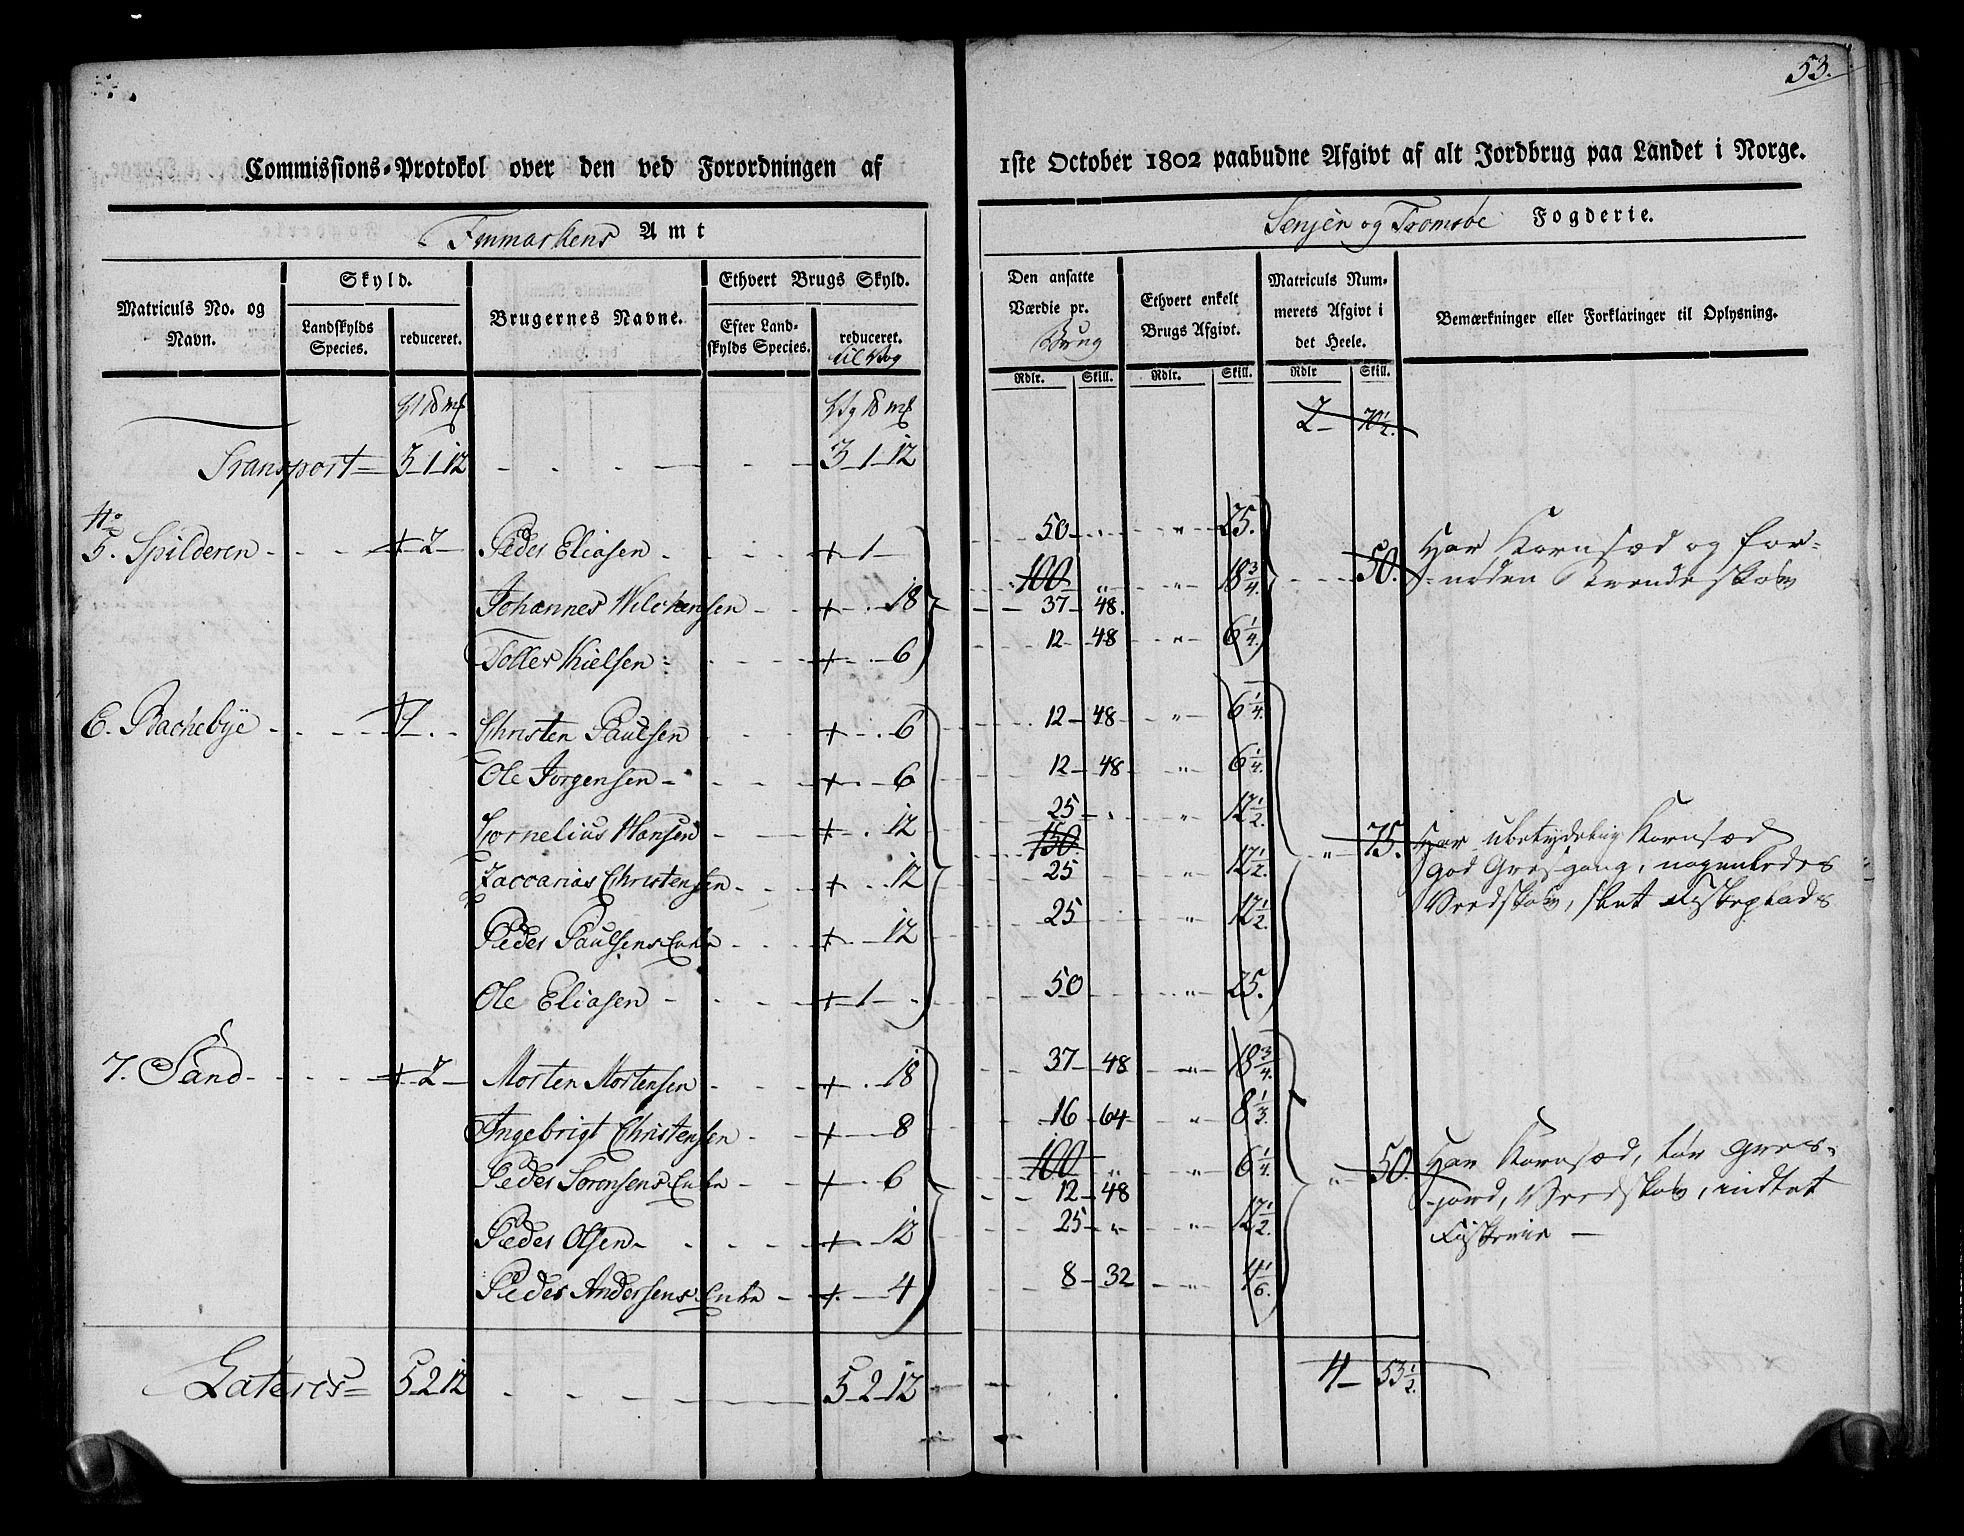 53.
Commissions-Protokol over den ved Forordningen af 1ste October 1802 paabudne Afgivt af alt Jordbrug paa Landet i Norge.
Finmarkens Amt
Senjen og Tromsøe Fogderie.
Matriculs No. og Navn.
Skyld.
Landskylds Species.
reduceret.
Brugernes Navne.
Ethvert Brugs Skyld.
Efter Landskylds Species.
reduceret. til Vog
Den ansatte Værdie pr. Brug
Ethvert enkelt Brugs Afgivt.
Matriculs Nummerets Afgivt i det Heele.
Bemærkninger eller Forklaringer til Oplysning.
Rdlr. Skill. Rdlr. Skill. Rdlr Skill.
2 - 70 1/2.
Transport = 3 - 1 - 12 3 - 1 - 12
No
5. Spilderen - - - + 2 - Peder Eliasen - + 1 - 50 - „ 25.
Johannes Wilchensen - + - . 18 100 „ 37 - 48. „ 18 3/4 50. Har Kornsæd og for-
nøden Brendeskov
Toller Nielsen + - . - 6 12 - 48 „ 6 1/4.
6. Bachebye - - - + 1 - . - Christen Paulsen + - . 6 12 - 48 „ 6 1/4.
Ole Jørgensen - + - - 6 12 - 48 „ 6 1/4.
Cornelius Hansen + - . 12 25 - . „ 12 1/2.
150. „ 75. Har ubetydelig Kornsæd
Zaccarias Christensen - + - . 12 25 „ 12 1/2. god Græsgang, nogenledes
Peder Paulsens Enke + - . - 12 25 „ 12 1/2. Brendskov, slet Fiskeplads
Ole Eliasen - + 1 - . 50 „ 25.
7. Sand - - - + 2 - Morten Mortensen + - . 18 37 - 48 „ 18 3/4.
Ingebrigt Christensen - + - 8 16 - 64 „ 8 1/3.
Peder Sørensens Enke - + - . 6 100 „ 12 - 48 „ 6 1/4. „ 50. Har Kornsæd, tør Græs-
jord, Brendskov, indtet
Peder Olsen - + - - 12 25 - „ „ 12 1/2. Fiskerie -
Peder Andersens Enke - + - 4 8 - 32 „ 4 1/6.
Lateris = 5 - 2 - 12 5 - 2 - 12 4 - 53 1/2.